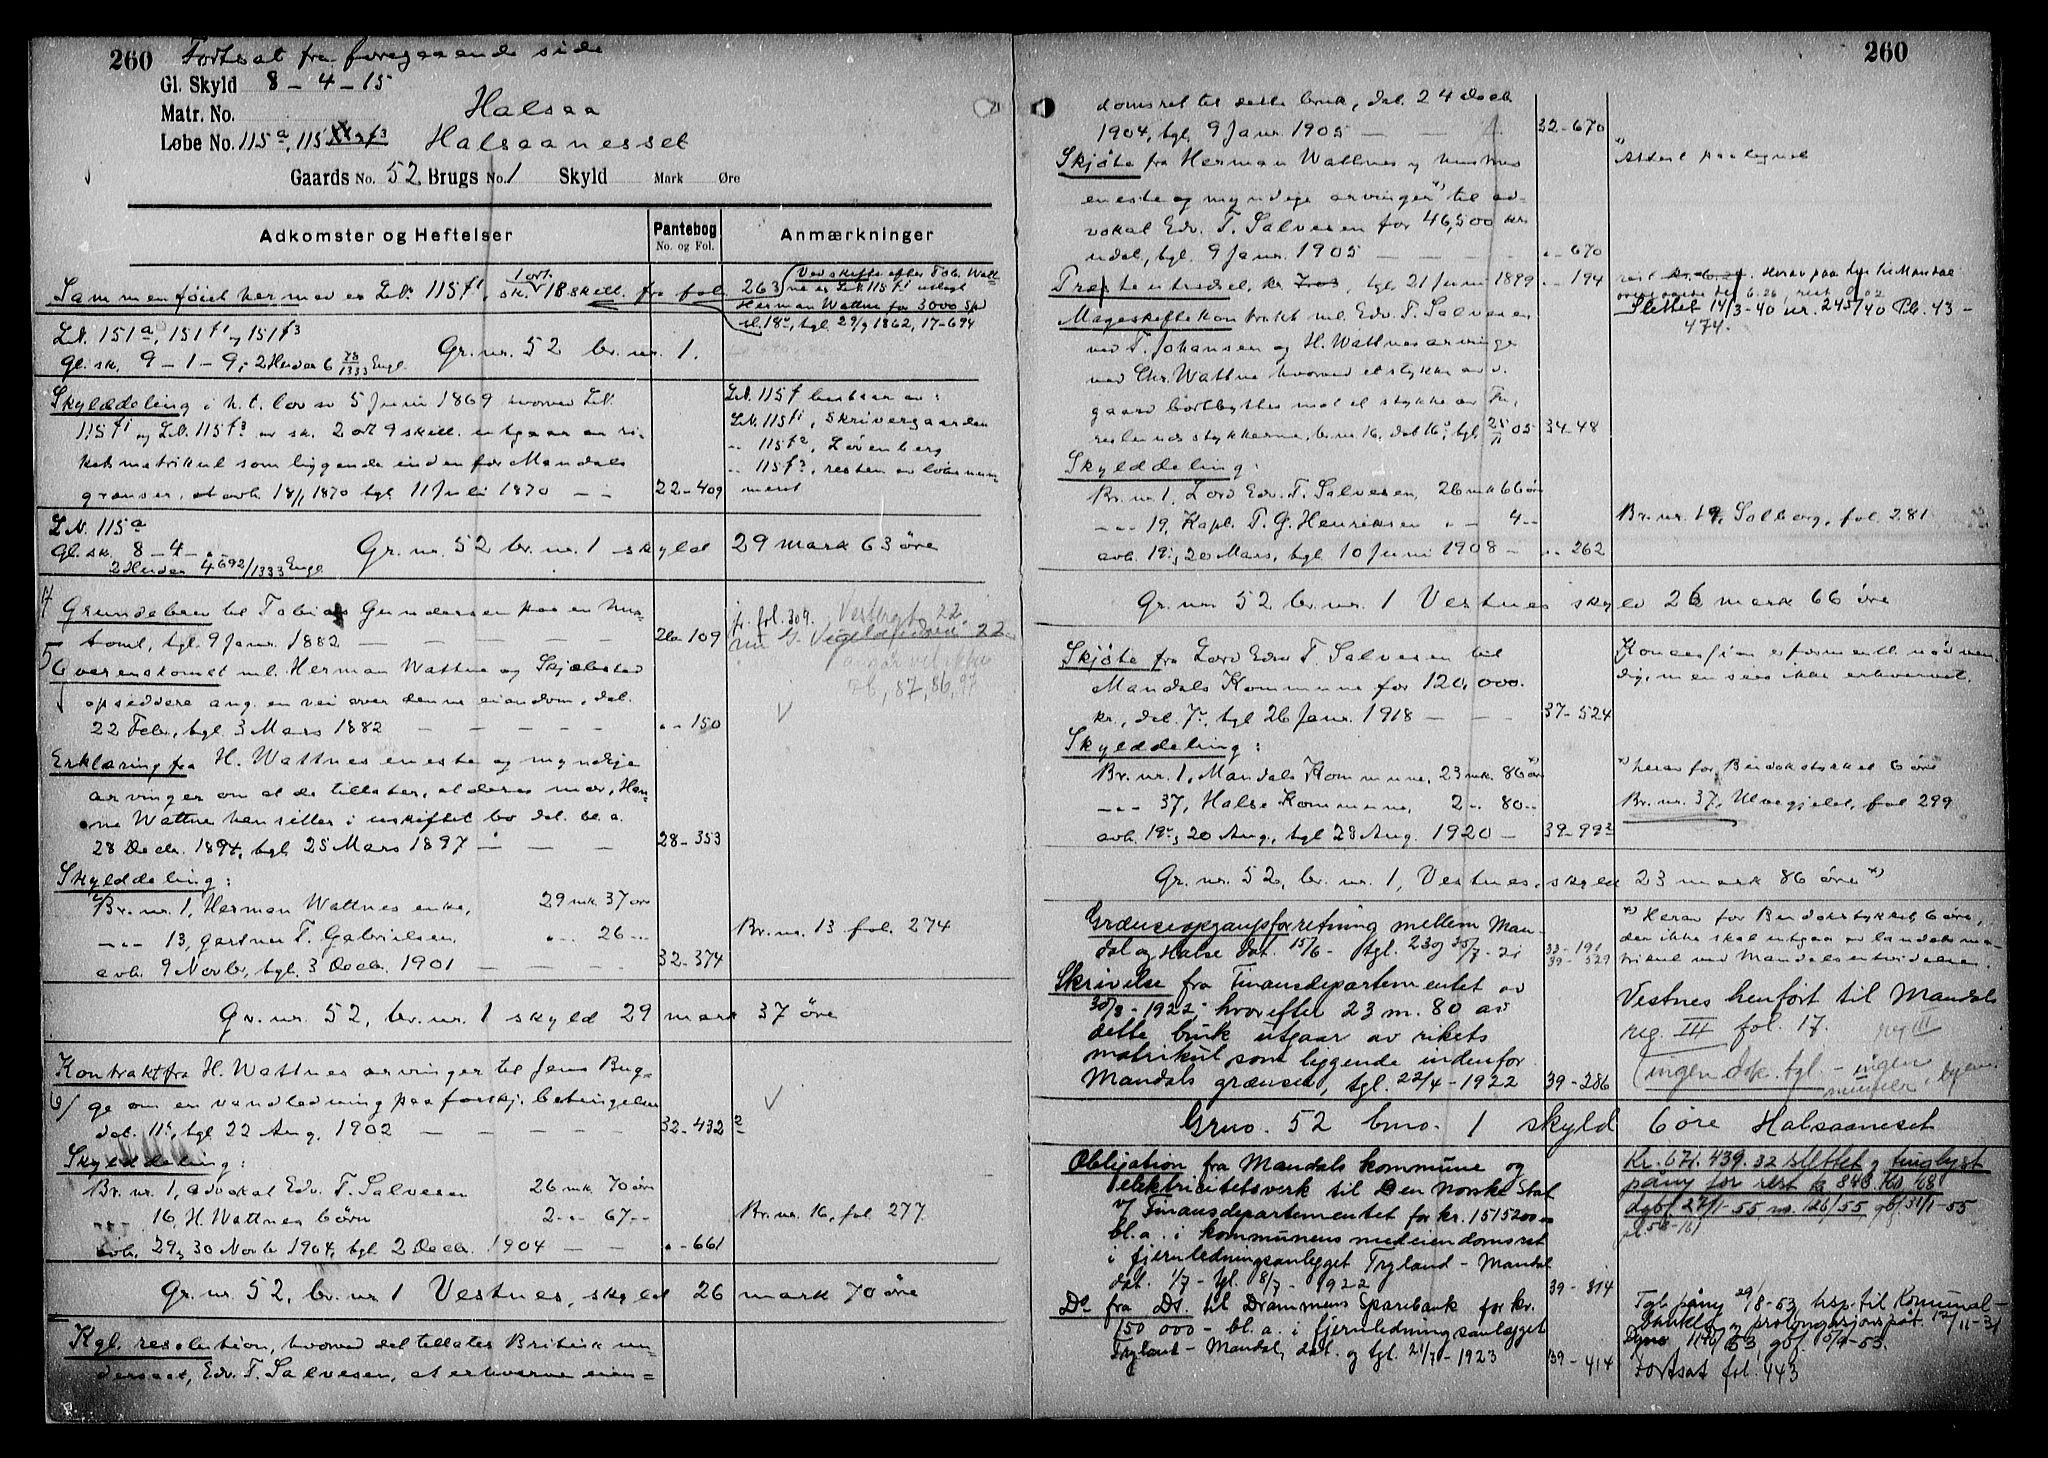 260 Fortsat fra foregaaende side
Gl. Skyld 8 - 4 - 15
Matr. No. Halsaa
Løbe No. 115a, 115 f3 Halsaanesset
Gaards No. 52 Brugs No. 1 Skyld Mark Øre
Adkomster og Heftelser
Pantebog
No. og Fol.
Anmærkninger
Sammenføiet hermed er L.N. 115f1, sk. 1 ort. 18 skill. fra fol. 263
Ved skifte efter Tob. Watt-
ne er L.N. 115 f1 utlagt
Herman Wattne for 3000 Spd
tgl. 29/9 1862, 17-694
L.N. 151a, 151f1 og 151f3
Gl. sk. 9 - 1 - 9; 2 Huder 6 78/1333 Engl. Gr. nr. 52 br. nr. 1.
Skylddeling i h. t. lov av 5 Juni 1869 hvorved L.N.
115f1 og L.N. 115f3 av sk. 2 ort 9 skill. utgaar av ri-
kets matrikul som liggende inden for Mandals
grænser, avh. 18/1 1870 tgl. 11 Juli 1870 - - 22-409
L.N. 115f bestaar av:
L.N. 115f1, Skrivergaarden
" 115f2, Løvenberg
" 115f3, resten av løbenum-
meret
L.N. 115a
Gl. sk. 8 - 4 - "
2 Huder 4 692/1333 Engl. Gr. nr. 52 br. nr. 1 skyld 29 mark 63 øre
Grundebrev til Tobias Gundersen paa en hus-
tomt, tgl. 9 Janr. 1882 - - - - 26-109
jfr. fol. 309.
Overenskomst ml. Herman Wattne og Skjæbstad
opsiddere ang. en vei over denne eiendom, dat.
22 Febr., tgl. 3 Mars 1882 - - - - " -150
Erklæring fra H. Wattnes eneste og myndige
arvinger om at de tillater, at deres mor, Han-
ne Wattne hensitter i uskiftet bo dat. bl. a.
28 Decbr. 1894, tgl. 25 Mars 1897 - - - 28-353
Skylddeling:
Br. nr. 1, Herman Wattnes enke, 29 mk. 37 øre
-"- 13, gartner T. Gabrielsen, "-" 26 -"-
avh. 9 Novbr., tgl. 3 Decbr. 1901 - - - - 32-374
Br. nr. 13 fol. 274
Gr. nr. 52, br. nr. 1 skyld 29 mark 37 øre
Kontrakt fra H. Wattnes arvinger til Jens Bug-
ge om en vandledning paa forskj. betingelser
dat. 11, tgl. 22 Aug. 1902 - - - - 32-432
Skylddeling:
Br. nr. 1, advokat Edv. T. Salvesen 26 mk. 70 øre
16, H. Wattnes børn 2 -"- 67 -"-
avh. 29 og 30 Novbr. 1904, tgl. 2 Decbr. 1904 - - " -661
Br. nr. 16, fol. 277.
Gr. nr. 52, br. nr. 1 Vestnes, skyld 26 mark 70 øre
Kgl. resolution, hvorved det tillates Britisk un-
dersaat, Edv. T. Salvesen, at erhverve eien-
260
domsret til dette bruk, dat. 24 Decbr.
1904, tgl. 9 Janr. 1905 - - - 32-670
Skjøte fra Herman Wattnes og hustrus
eneste og myndige arvinger x) til ad-
vokat Edv. T. Salvesen for 46,500 kr.
udat., tgl. 9 Janr. 1905 - - - - " -670
x) Attest paategnet
Præsteutredsel, tgl. 21 Juni 1899 " -194
Mageskiftekontrakt ml. Edv. T. Salvesen
ved T. Johansen og H. Wattnes arvinge
ved Chr. Wattne hvorved et stykke av d.
gaard bortbyttes mot et stykke av Fu-
reslundstykkerne, br. nr. 16, dat. 16, tgl. 25/11 05 34-48
Slettet 14/3-40 nr. 245/40 Pb. 43-
474.
Skylddeling:
Br. nr. 1, Lord Edv. T. Salvesen, 26 mk 66 øre
-"- 19, Kapt. T. G. Henriksen " - 4 -"-
avh. 19 og 20 Mars, tgl. 10 Juni 1908 - " - 262
Br. nr. 19, Solborg, fol. 281
Gr. nr. 52 br. nr. 1 Vestnes skyld 26 mark 66 øre
Skjøte fra Lord Edv. T. Salvesen til
Mandals Kommune for 120,000.
kr., dat. 7, tgl. 26 Janr. 1918 - - - 37-524
Koncession er forment. nødven-
dig, men sees ikke erhvervet.
Skylddeling:
Br. nr. 1, Mandals Kommune, 23 mk. 86 x) øre
-"- 37, Halse Kommune, 2 -"- 80 -"-
avh. 19 og 20 Aug., tgl. 28 Aug. 1920 - 39-99
x) herav for Bendokstykket 6 øre
Br. nr. 37, Ulvegjelet, fol 299
Gr. nr. 52, br. nr. 1, Vestnes, skyld 23 mark 86 øre x)
Grænseopgangsforretning mellem Man-
dal og Halse dat. 15/6 - tgl. 23 og 25/7-21 39-191
39-529
x) Herav for Bendokstykket 6 øre,
der ikke skal utgaa av landets ma-
trikul ved Mandals utvidelse.
Skrivelse fra Finansdepartementet av
30/3-1922, hvorefter 23 m. 80 av
dette bruk utgaar av rikets
matrikul som liggende indenfor
Mandals grænser, tgl. 22/4-1922 39-286
Vestnes henført til Mandals
reg. III fol. 17.
(ingen dok. tgl. - ingen
Gno. 52 bno. 1 skyld 6 øre Halsaaneset
Obligation fra Mandals kommune og
elektricitetsverk til Den norske Stat
v/ Finansdepartementet for kr. 1515200
bl. a. i kommunens medeiendomsret
i fjernledningsanlegget Tryland - Mandal
dat. 1/7 - tgl. 8/7 - 1922 39-814
Kr. 671.439.32 slettet og tinglyst
påny for rest kr 843.760.68
dgbf. 27/1-55, nr. 126/55 gbf 31/1-55
Do. fra Ds. til Drammens Sparebank for kr.
150 000 - bl. a. i fjernledningsanlegget
Tryland - Mandal, dat. og tgl. 21/7-1923 39-414
Tgl. påny 29/8-53, trsp. til Komunal-
banken og prolongasjonspåt. 12/11-31
Fortsat fol. 443